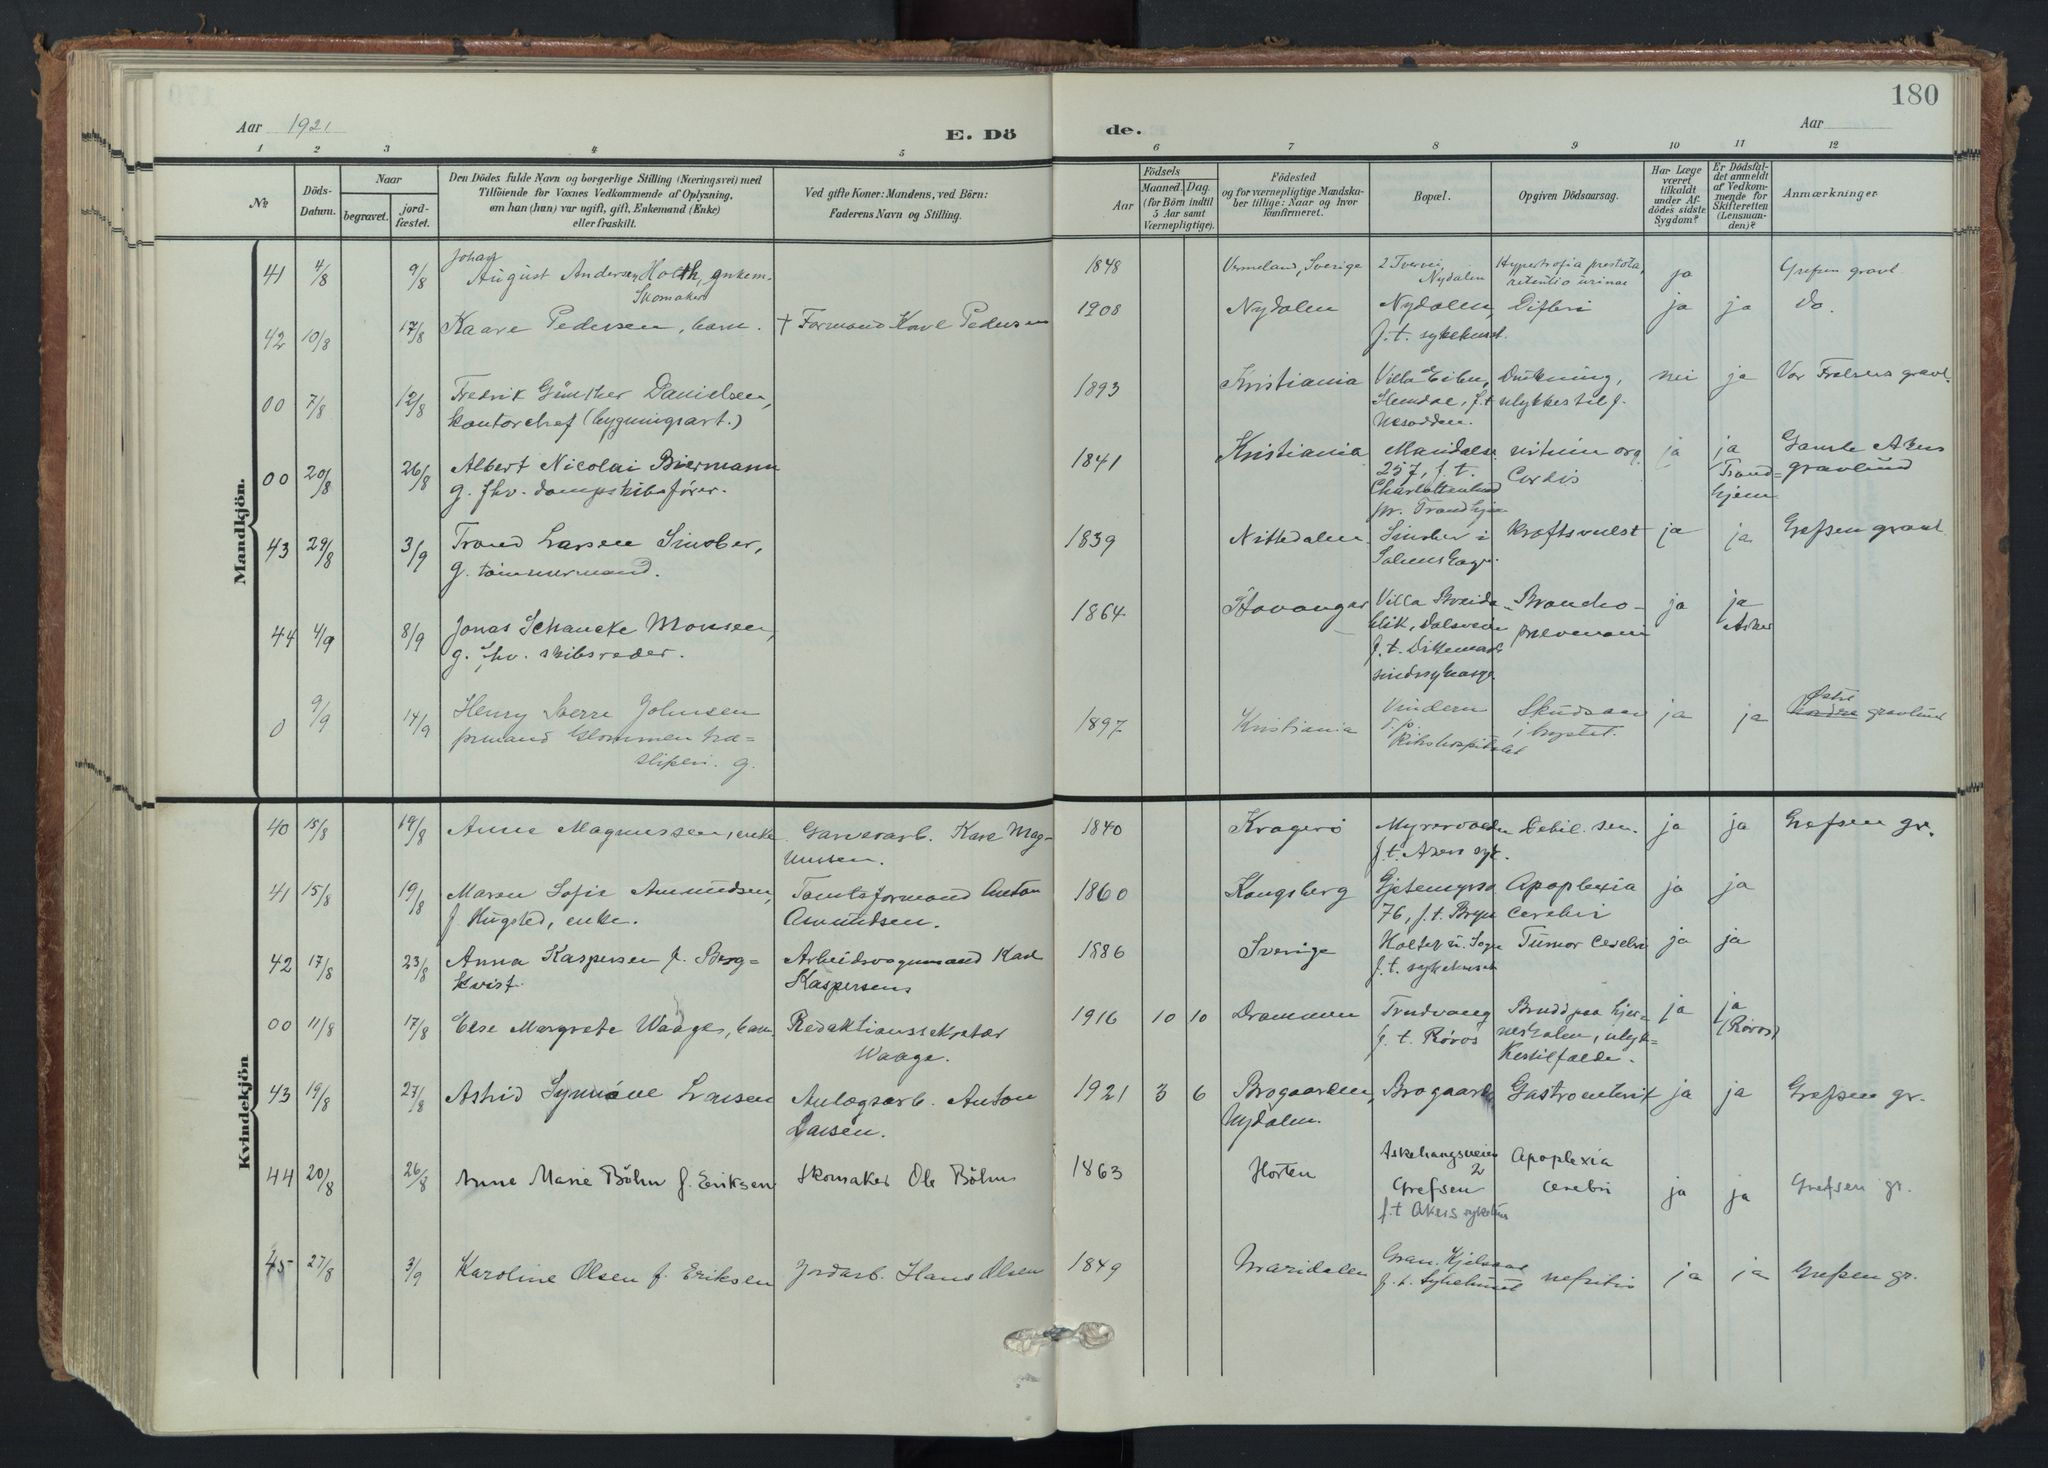 180
Aar 1921
E. Dö
de.
Aar
1 2 3 4 5 6 7 8 9 10 11 12
№
Döds-
Datum.
Naar
begravet.
jord-
fæstet.
Den Dödes fulde Navn og borgerlige Stilling (Næringsvei) med
Tilföiende for Voxnes Vedkommende af Oplysning,
om han (hun) var ugift, gift, Enkemand (Enke)
eller fraskilt.
Ved gifte Koner: Mandens, ved Börn:
Faderens Navn og Stilling.
Födsels
Aar
Maaned. Dag.
(for Börn indtil
5 Aar samt
Værnepligtige).
Födested
og for værnepligtige Mandska-
ber tillige: Naar og hvor
konfirmeret.
Bopæl.
Opgiven Dödsaarsag.
Har Læge
været
tilkaldt
under Af-
dödes sidste
Sygdom?
Er Dödsfal-
det anmeldt
af Vedkom-
mende for
Skifteretten
(Lensman-
den)?
Anmærkninger.
Mandkjön.
41 4/8 9/8 Johan
August Andersen Holth, enkem.
Skomaker
1848 Vermeland, Sverige 2 Tvervei
Nydalen Hypertrofia prostata,
retentio urinae ja Grefsen gravl
42 10/8 17/8 Kaare Pedersen, barn. † Formand Karl Pedersen 1908 Nydalen Nydalen,
f. t. sykehuset. Difteri ja ja Do.
00 7/8 12/8 Fredrik Günther Danielsen,
kontorchef (bygningsart.) 1893 Kristiania Villa
f. t.
Nesodden. Drukning,
ulykkestilf. nei ja Vor Frelsers gravl.
00 20/8 26/8 Albert Nicolai Biermann
g. fhv. dampskibsfører. 1841 Kristiania Maridalsv.
257, f. t.
Charlottenlund
pr. Trondhjem vitium org.
Cordis ja ja
Trond-
hjem Gamle Akers
gravlund
43 29/8 3/9 Trond Larsen Sinober,
g. tømmermand. 1839 Nittedalen Sinober i
Kræftsvulst ja ja Grefsen gravl
44 4/9 8/9 Jonas Schancke Monsen,
g. fhv. skibsreder. 1864 Stavanger Villa Breida-
blik, Dalsveien
f. t. Dikemark
sindssykeasyl Broncho-
pneumoni ja ja
Asker
0 9/9 14/9 Henry Sverre Johnsen
formand Glommen træ-
sliperi. g. 1897 Kristiania Vindern
d. p.
Rikshospitalet Skudsaar
i brystet. ja ja Østre
Nordre gravlund
Kvindekjön
40 15/8 19/8 Anne Magnussen, enke Garverarb. Karl Mag-
nussen. 1840 Kragerö Myrervolden
f. t. Akers syk. Debil. sen. ja ja Grefsen gr.
41 15/8 19/8 Maren Sofie Amundsen,
f. Kugsted, enke. Tomtaformand Anton
Amundsen. 1860 Kongsberg Gjetemyrsv
76, f. t. Bryn Apoplexia
cerebri ja ja
42 17/8 23/8 Anna Kaspersen f. Berg-
kvist. Arbeidsvognmand Karl
Kaspersens 1886 Sverige
f. t. sykehuset Tumor cerebri ja ja
00 11/8 17/8 Else Margrete Waage, barn. Redaktionssekretær
Waage. 1916 10 10 Drammen Trudvang
f. t. Røros Brudd paa hjer-
neskalen, ulyk-
kestilfælde. ja ja
(Røros)
43 19/8 27/8 Astrid Synnöve Larsen Anlægsarb. Anton
Larsen. 1921 3 6 Brogaarden,
Nydalen. Brogaarden Gastroenterit ja ja Grefsen gr.
44 20/8 26/8 Anne Marie Böhn f. Eriksen Skomaker Ole Böhn 1863 Horten Askehaugsveien
2
Grefsen
f. t Akers sykehus Apoplexia
cerebri ja ja Grefsen gr.
45 27/8 3/9 Karoline Olsen f. Eriksen Jordarb. Hans Olsen 1849 Maridalen Gran. Kjelsaas
f. t. Sykehuset nefritis ja ja Grefsen gr.